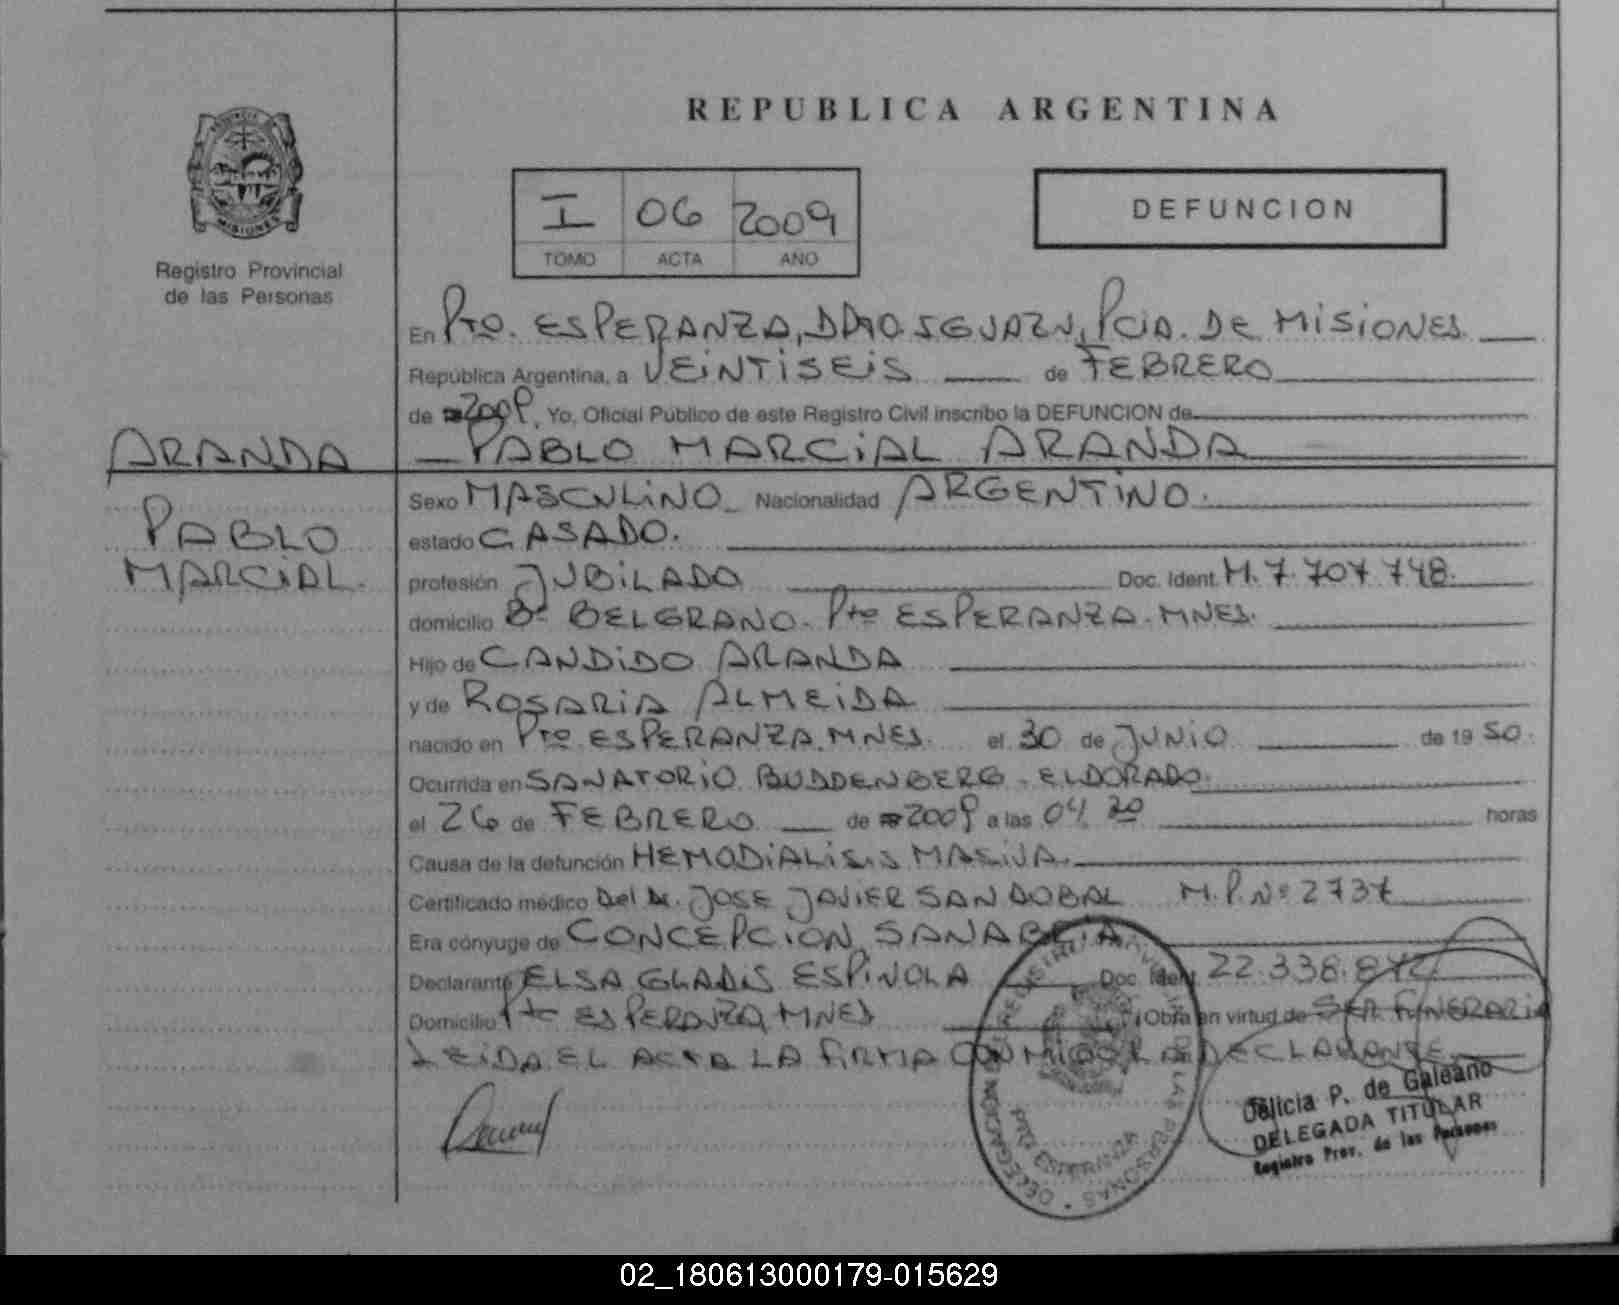 REPUBLICA ARGENTINA
PROVINCIA DE
MISIONES
Registro Provincial
de las Personas
I 06 2009
TOMO ACTA AÑO
DEFUNCION
En Pto. ESPERANZA, DPTO. IGUAZU, PCIA. DE MISIONES
República Argentina, a VEINTISEIS de FEBRERO
de 2009, Yo, Oficial Público de este Registro Civil inscribo la DEFUNCION de
ARANDA PABLO MARCIAL ARANDA
PABLO
MARCIAL.
Sexo MASCULINO Nacionalidad ARGENTINO.
estado CASADO.
profesión JUBILADO Doc. Ident. M. 7.707.748.
domicilio Bº BELGRANO. Pto ESPERANZA. MNES.
Hijo de CANDIDO ARANDA
y de ROSARIA ALMEIDA
nacido en Pto. ESPERANZA. MNES. el 30 de JUNIO de 19 50.
Ocurrida en SANATORIO BUDDENBERG - ELDORADO.
el 26 de FEBRERO de 2009 a las 04 20 horas
Causa de la defunción HEMODIALISIS MASIVA.
Certificado médico Del Dr. JOSE JAVIER SANDOBAL M.P. Nº 2737
Era cónyuge de CONCEPCION SANABRIA
Declarante ELSA GLADIS ESPINOLA Doc. Ident. 22.338.842
Domicilio Pto ESPERANZA, MNES Obra en virtud de SER FUNERARIA
LEIDA EL ACTA LA FIRMA CONMIGO LA DECLARANTE
DELEGACION REGISTRO PROVINCIAL DE LAS PERSONAS
PTO. ESPERANZA
Delicia P. de Galeano
DELEGADA TITULAR
Registro Prov. de las Personas
02_180613000179-015629